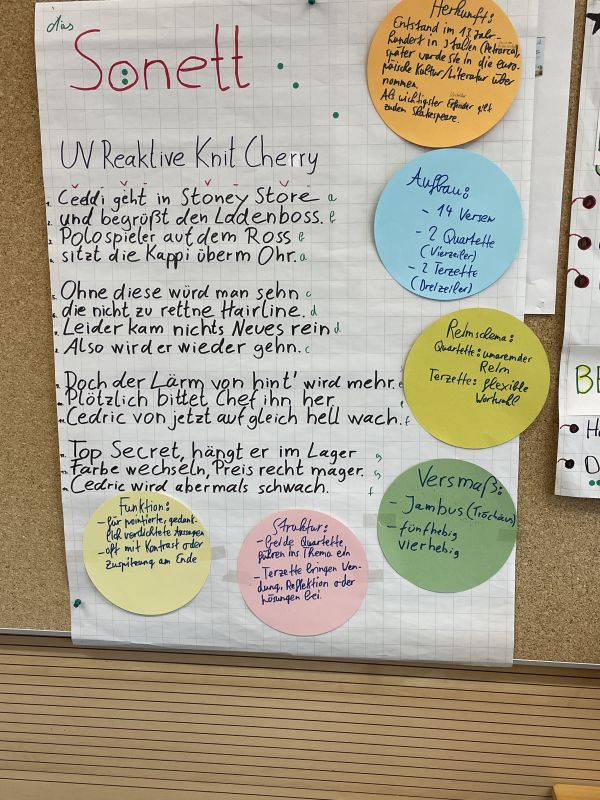 das
Sonett
UV Reaktive Knit Cherry
1. Ceddi geht in Stoney Store a
2. und begrüßt den Ladenboss. b
3. Polospieler auf dem Ross b
4. sitzt die Kappi überm Ohr. a
Ohne diese würd man sehn c
die nicht zu rettne Hairline. d
Leider kam nichts Neues rein d
Also wird er wieder gehn. c
Doch der Lärm von hint' wird mehr. e
Plötzlich bittet Chef ihn her. e
Cedric von jetzt auf gleich hell wach. f
Top Secret, hängt er im Lager g
Farbe wechseln, Preis recht mager. g
Cedric wird abermals schwach. f
Herkunft:
Entstand im 13 Jahr-
hundert in Italien (Petrarca),
später wurde sie in die euro-
päische Kultur/Literatur über
nommen.
Als wichtigster Erfinder gilt
zudem Shakespeare.
Aufbau:
- 14 Versen
- 2 Quartette
(Vierzeiler)
- 2 Terzette
(Dreizeiler)
Reimschema:
Quartette: umarmender
Reim
Terzette: flexible
Wortwahl
Versmaß:
- Jambus (Trochäus)
- fünfhebig
vierhebig
Funktion:
- für pointierte, gedank-
lich verdichtete Aussagen
- oft mit Kontrast oder
Zuspitzung am Ende
Struktur:
- beide Quartette,
führen ins Thema ein
- Terzette bringen Wen-
dung, Reflektion oder
Lösungen bei.
BE
H
D